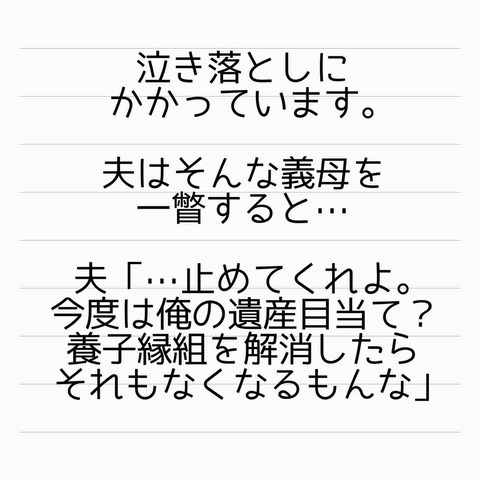 泣き落としに
かかっています。
夫はそんな義母を
一瞥すると…
夫「…止めてくれよ。
今度は俺の遺産目当て？
養子縁組を解消したら
それもなくなるもんな」